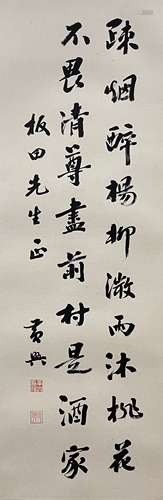 疎烟醉楊柳澂雨沐桃花
不畏清尊盡前村是酒家
板田先生正
黃興